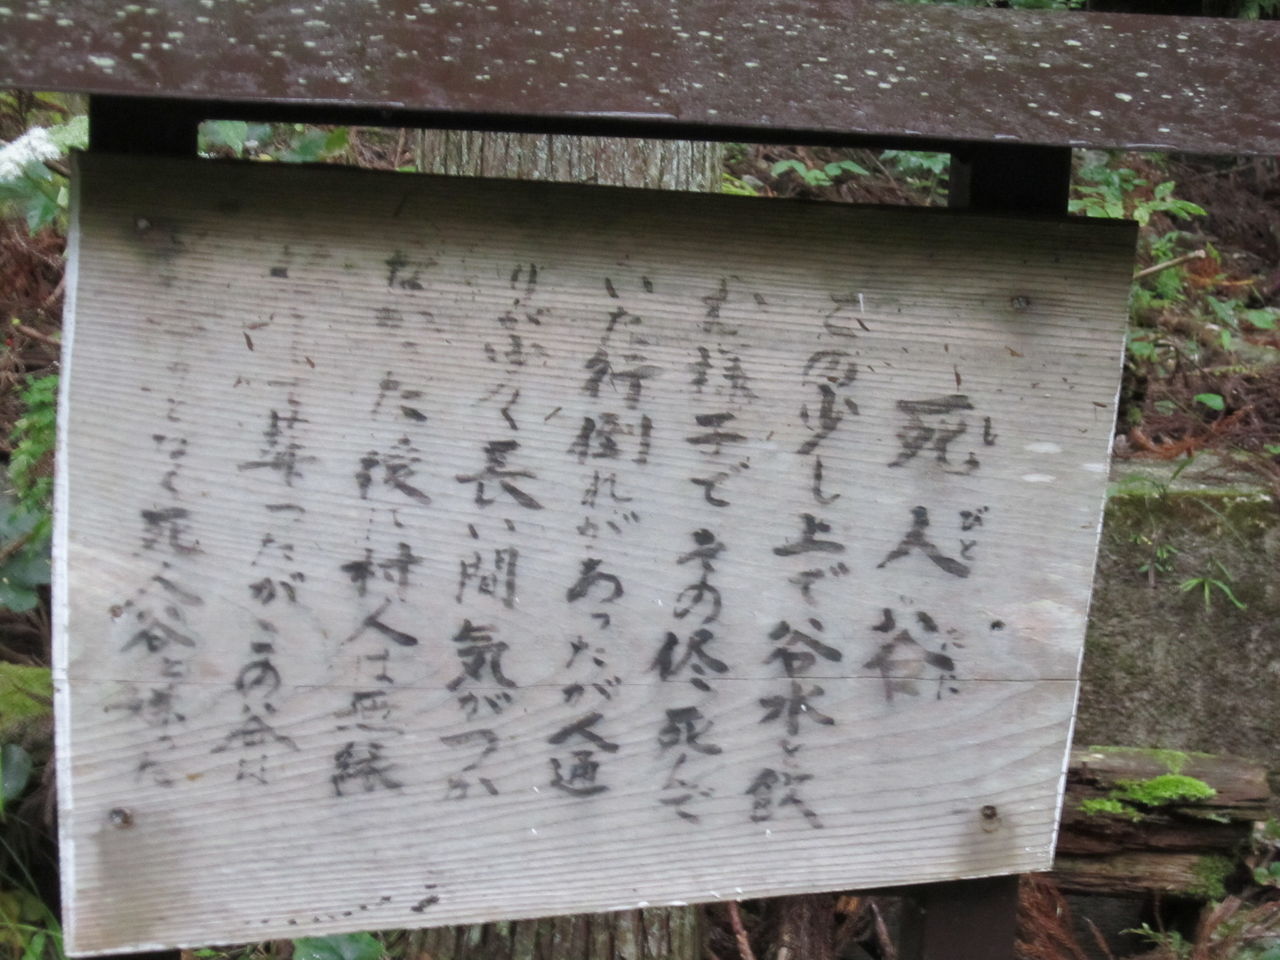 死人谷
しびと
この少し上で谷水を飲
む様子でその侭死んで
いた行倒れがあったが人通
りが少く長い間気がつか
なかった後に村人は無縁
して葬ったが、この谷は
となく死人谷と
った